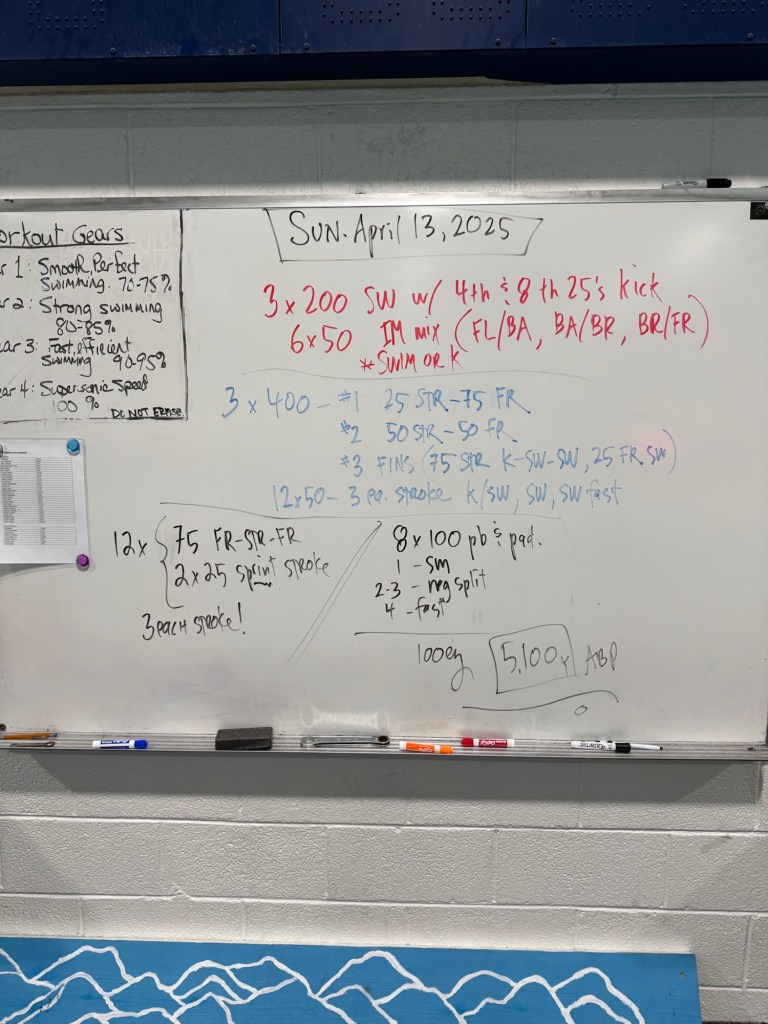 orkout Gears
r 1: Smooth, Perfect
Swimming. 70-75%
r 2: Strong swimming
80-85%
ear 3: Fast, efficient
Swimming 90-95%
ear 4: Supersonic Speed
100 %
DO NOT ERASE
SUN. April 13, 2025
3 x 200 SW w/ 4th & 8th 25's kick
6x50 IM mix (FL/BA, BA/BR, BR/FR)
*SWIM OR K
3 x 400 - #1 25 STR-75 FR
#2 50 STR-50 FR
#3 FINS (75 STR K-SW-SW, 25 FR SW)
12x50 - 3 ea. stroke K/SW, SW, SW fast
12x { 75 FR-STR-FR
2x25 sprint stroke
3 each stroke!
8 x 100 pb & pad.
1 - sm
2-3 - neg split
4 - fast
100 ez 5,100y ABP
EXPO